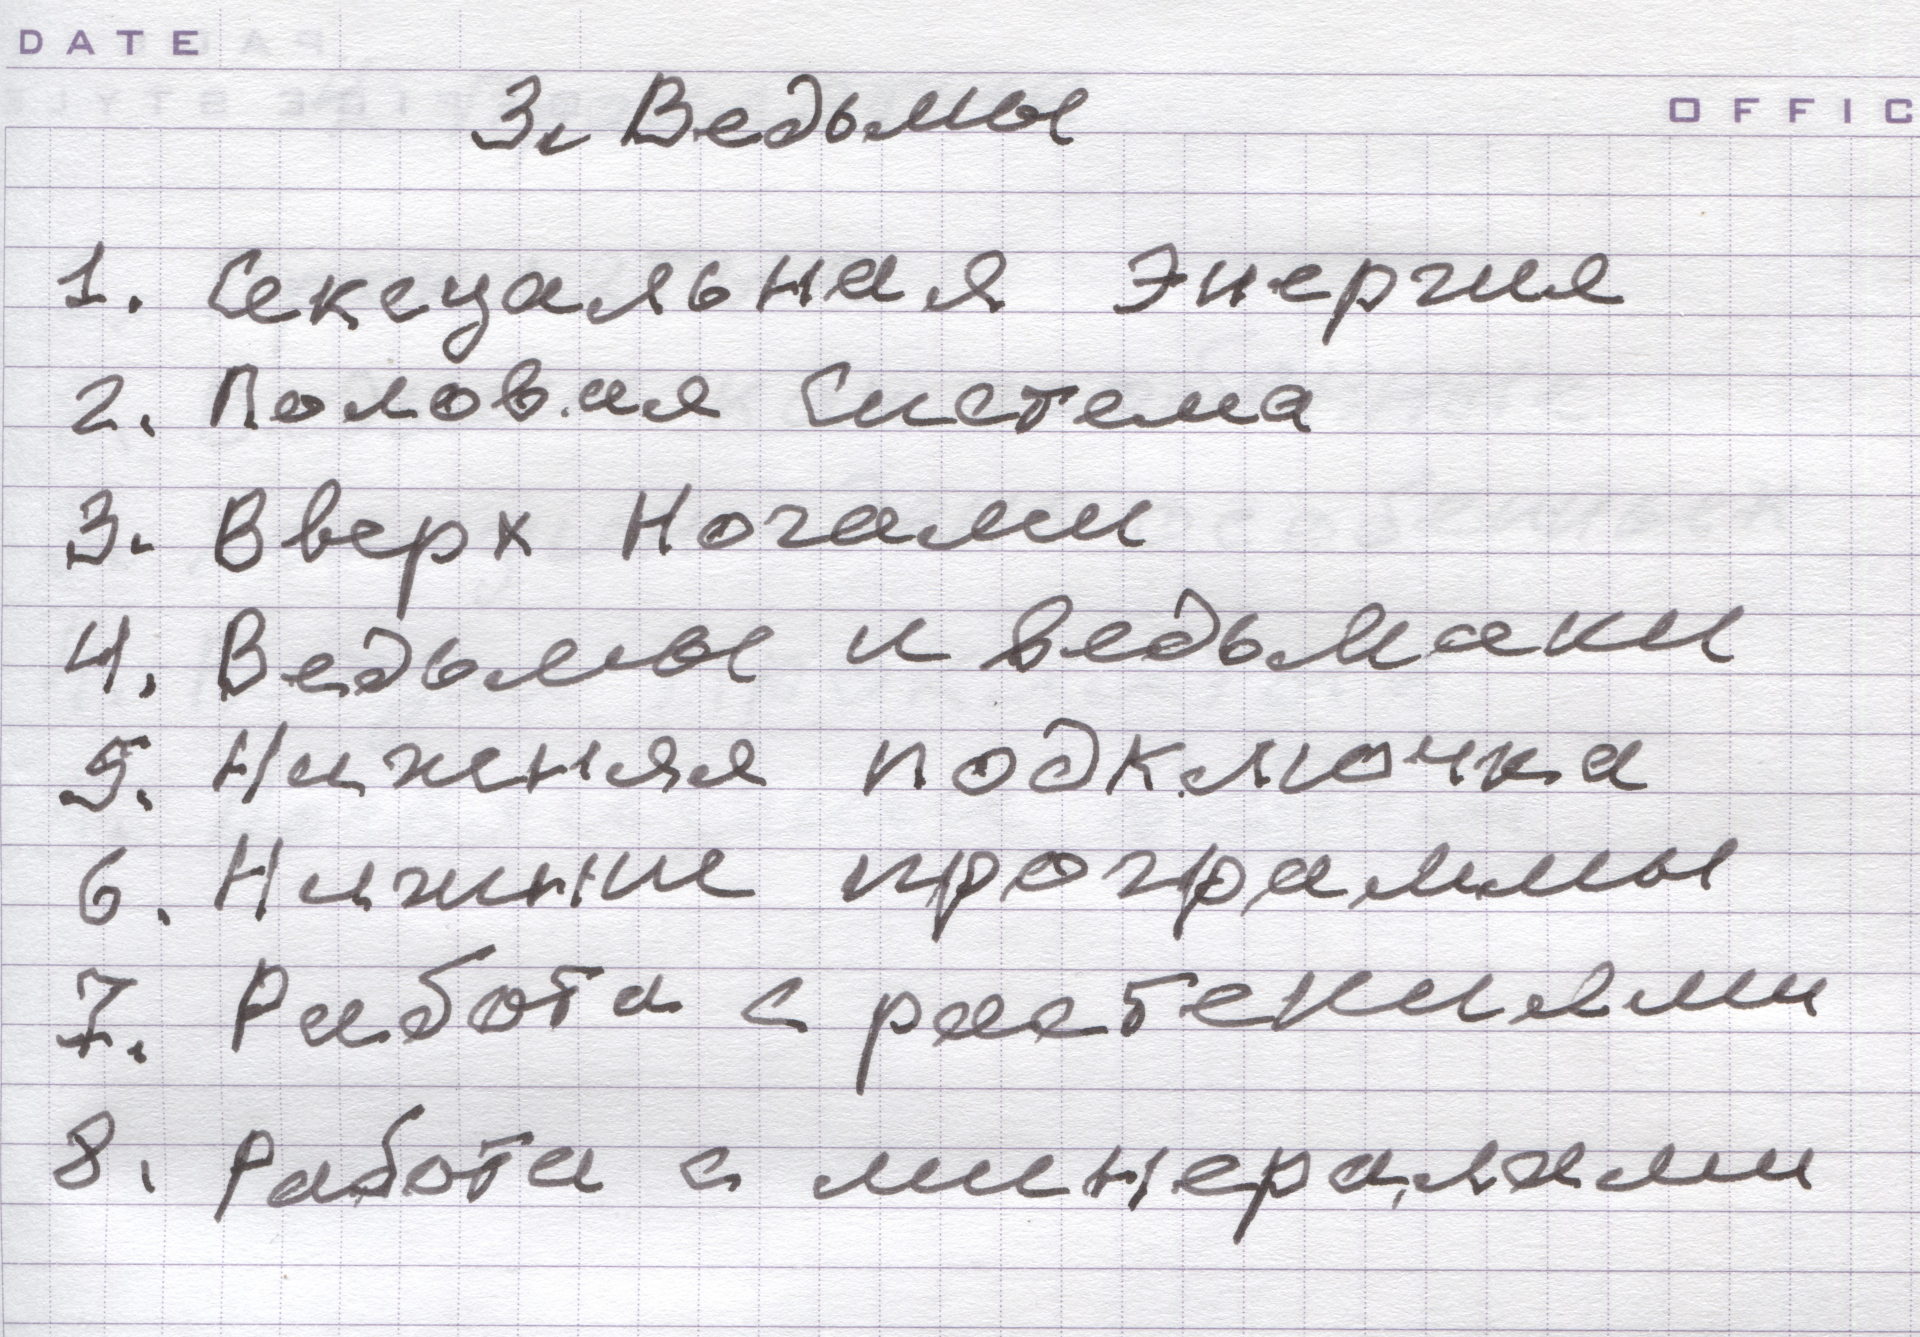 DATE
3. Ведьмы
OFFIC
1. Сексуальная Энергия
2. Половая Система
3. Вверх Ногами
4. Ведьмы и ведьмаки
5. Нижняя подключка
6. Нижние программы
7. Работа с растениями
8. Работа с минералами